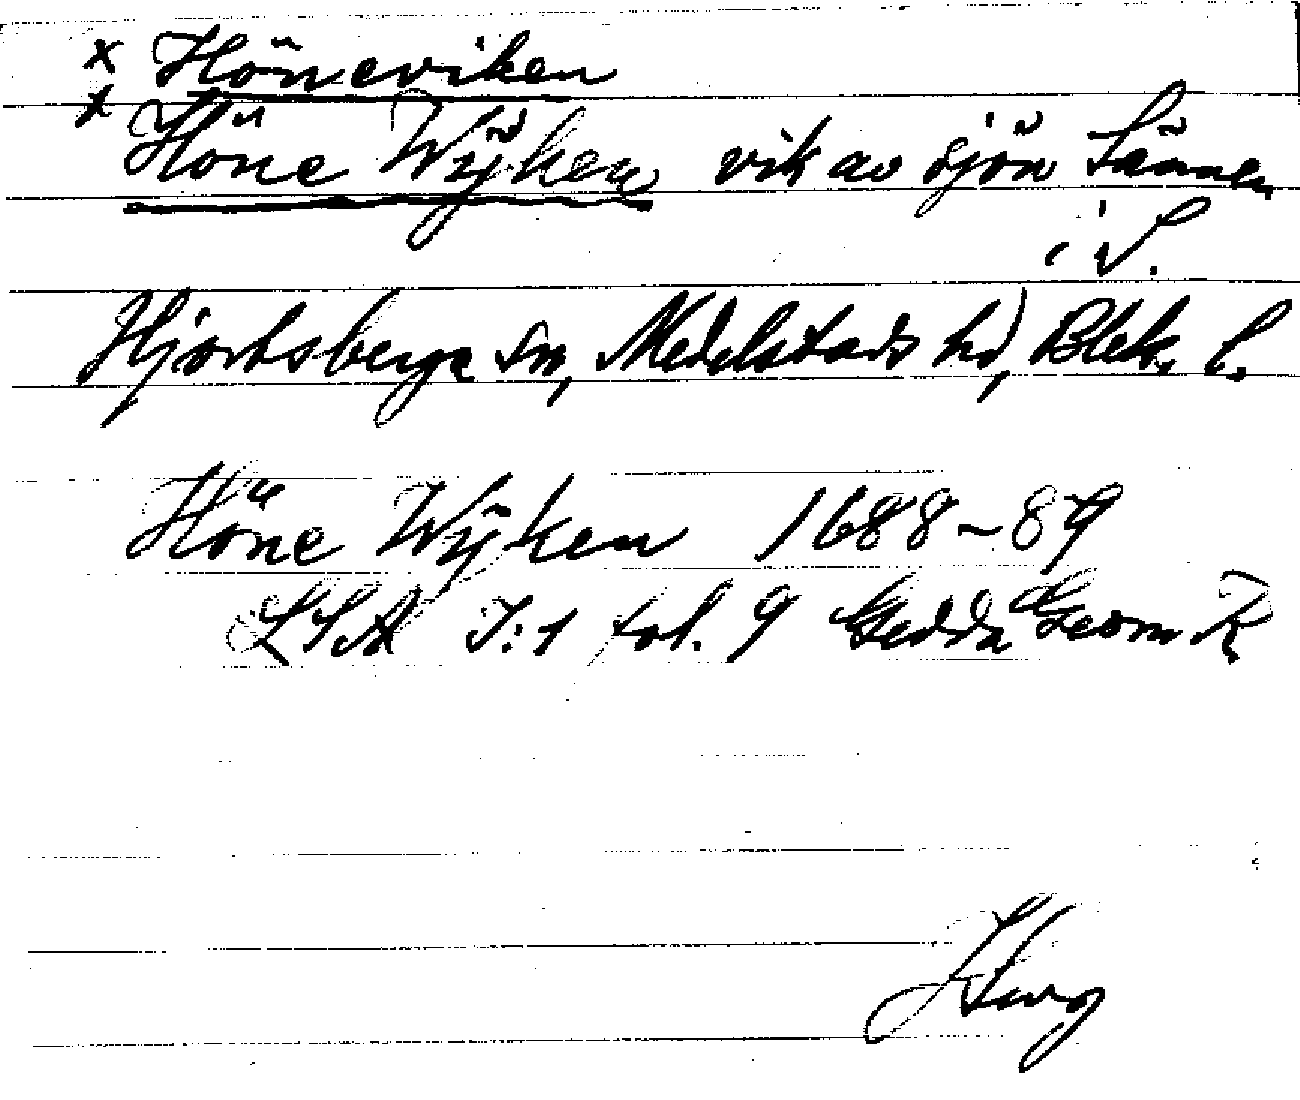 x Höneviken
x Höne Wÿken vik av sjön Sännen
i V.
Hjortsberga sn, Medelstads hd, Blek. l.
Höne Wÿken 1688-89
LSA I:1 fol. 9 Gedda Geom R